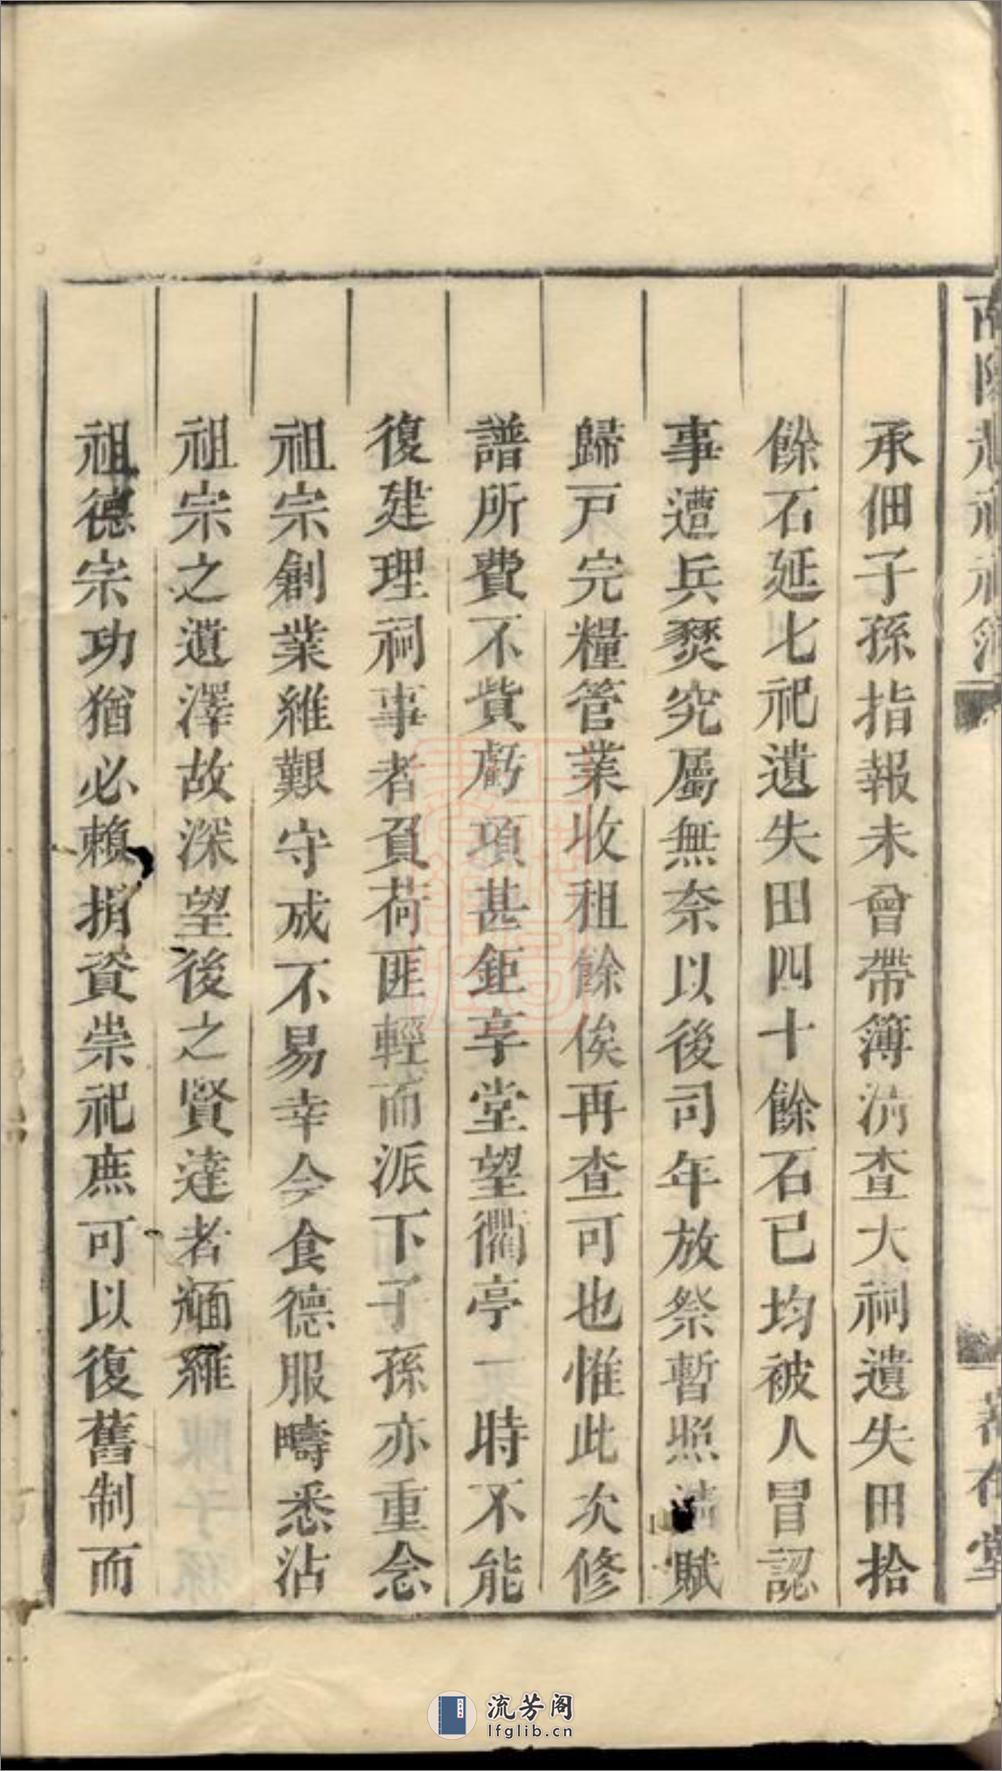 承佃子孫指報未曾帶簿淸查大祠遺失田拾
餘石延七祀遺失田四十餘石已均被人冒認
事遭兵燹究屬無奈以後司年放祭暫照清賦
歸戸完糧管業收租餘俟再查可也惟此次修
譜所費不貲虧項甚鉅享堂望衢亭一時不能
復建理祠事者負荷匪輕而派下子孫亦重念
祖宗創業維艱守成不易幸今食德服疇悉沾
祖宗之遺澤故深望後之賢達者緬維
祖德宗功猶必賴捐資崇祀庶可以復舊制而
流芳阁
lfglib.cn